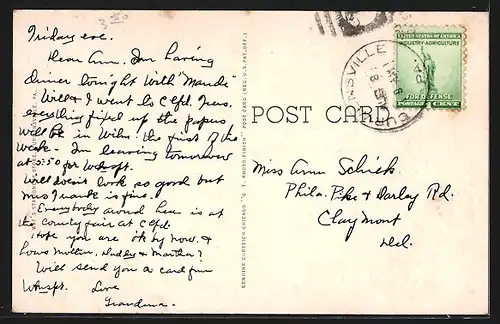 Friday eve.
Dear Ann. Im having
dinner tonight with "Maude"
Will & I went to Clfd. Tues.
everything fixed up the papers
will be in Wilm. the first of the
week - Im leaving tomorrow
at 5:50 for Wmspt.
Will doesn't look so good but
Mrs Frank is fine.
Everybody around here is at
the county fair at Clfd.
Hope you are o'k by now. &
hows Mother, Dudley & Martha?
Will send you a card from
Wmspt. Love
Grandma.
POST CARD
Miss Ann Schick
Phila. Pike & Darley Rd.
Claymont
Del.
UNITED STATES OF AMERICA
INDUSTRY·AGRICULTURE
FOR DEFENSE
POSTAGE 1 CENT
GENUINE CURTEICH-CHICAGO "C. T. PHOTO-FINISH" POST CARD (REG. U.S. PAT. OFF.)